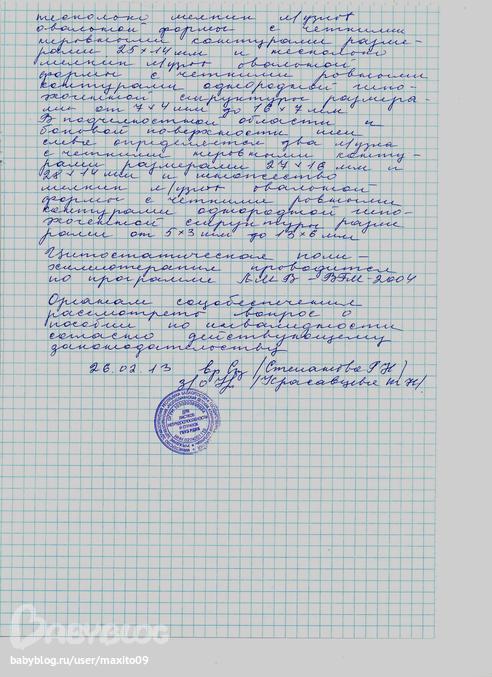 несколько мелких л/узлов
овальной формы с четкими
неровными контурами разме-
рами 25×14 мм и несколько
мелких л/узлов овальной
формы с четкими ровными
контурами однородной гипо-
эхогенной структуры размера-
ми от 4×4 мм до 16×7 мм
В подчелюстной области и
боковой поверхности шеи
слева определяется два л/узла
с четкими неровными конту-
рами размерами 27×16 мм и
28×14 мм и множество
мелких л/узлов овальной
формы с четкими ровными
контурами однородной гипо-
эхогенной структуры разме
рами от 5×3 мм до 13×6 мм
Цитостатическая поли-
химиотерапия проводится
по программе
Органам соцобеспечения
рассмотреть вопрос о
пособии по инвалидности
согласно действующему
законодательству
26.02.13 вр /Степанова
з/о /Красавцева
ДЛЯ
ЛИСТКОВ
НЕТРУДОСПОСОБНОСТИ
И СПРАВОК
BABYBLOG
babyblog.ru/user/maxito09